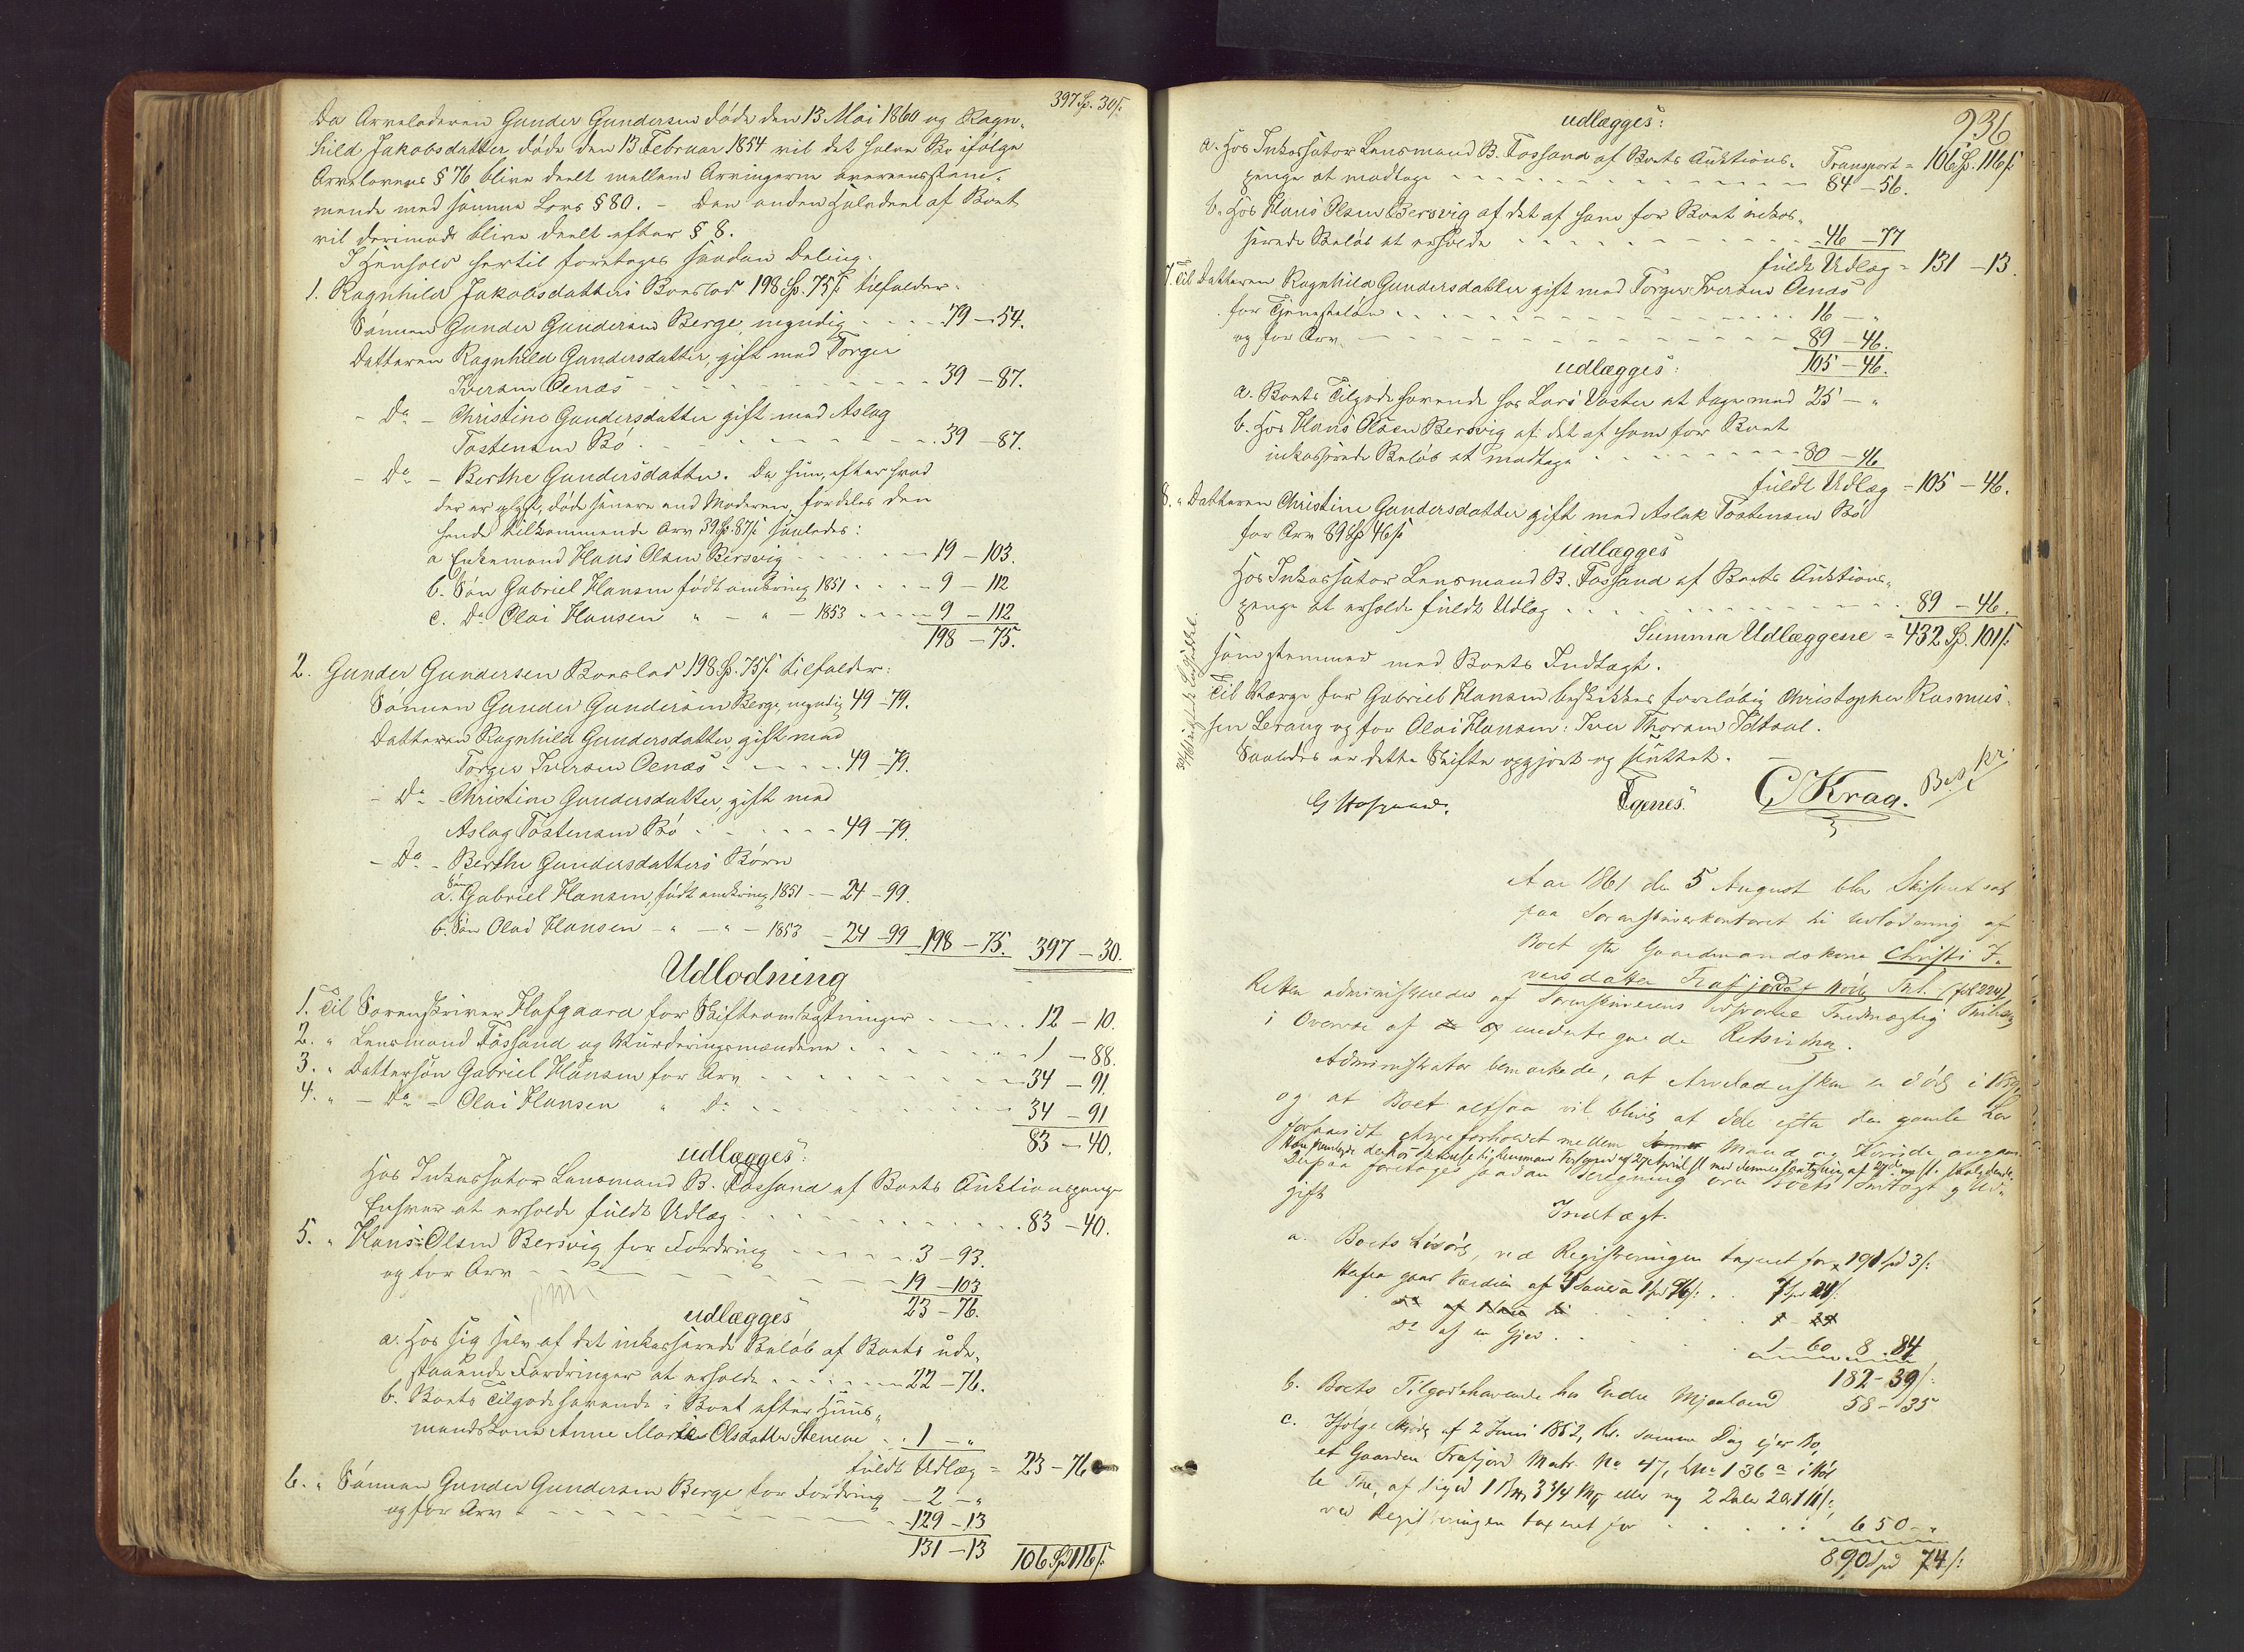 397 Sp. 30 ſ.
Da Arveladeren Gunder Gundersen døde den 13 Mai 1860 og Ragn-
hild Jakobsdatter døde den 13 Februar 1854 vil det halve Bo ifølge
Arvelovens § 76 blive deelt mellem Arvingerne overeensstem-
mende med samme Lovs § 80. – Den anden Halvdeel af Boet
vil derimod blive deelt efter § 8.
I Henhold hertil foretages saadan Deling:
1. Ragnhild Jakobsdatters Boeslod 198 Sp. 75 ſ tilfalder:
Sønnen Gunder Gundersen Berge, myndig 79 – 54.
Datteren Ragnhild Gundersdatter, gift med Torger
Iversen Oenæs 39 – 87.
– Do – Christine Gundersdatter gift med Aslag
Tostensen Bø 39 – 87.
– Do – Berthe Gundersdatter. Da hun, efter hvad
der er oplyst, døde senere end Moderen, fordeles den
hende tilkommende Arv 39 Sp. 87 ſ saaledes:
a Enkemand Hans Olsen Bersvig 19 – 103.
b. Søn Gabriel Hansen født omkring 1851 9 – 112
c. Do Olai Hansen " – " – 1853 9 – 112
198 – 75.
2. Gunder Gundersen Boeslod 198 Sp. 75 ſ tilfalder:
Sønnen Gunder Gundersen Berge, myndig 49 – 79.
Datteren Ragnhild Gundersdatter gift med
Torger Iversen Oenæs 49 – 79.
– Do – Christine Gundersdatter, gift med
Aslag Tostensen Bø 49 – 79.
– Do – Berthe Gundersdatters Børn
a. Søn Gabriel Hansen, født omkring 1851 – 24 – 99.
b. Søn Olai Hansen – " – " – 1853 – 24 – 99 198 – 75. 397 – 30.
Udlodning
1. Til Sorenskriver Hofgaard for Skifteomkostninger 12 – 10.
2. " Lensmand Fossand og Vurderingsmændene 1 – 88.
3. " Dattersøn Gabriel Hansen for Arv 34 – 91.
4. " – Do – Olai Hansen " Do 34 – 91
83 – 40.
udlægges:
Hos Inkassator Lensmand B. Fossand af Boets Auktionspenge
Enhver at erholde fuldt Udlæg 83 – 40.
5. " Hans Olsen Bersvig for Fordring 3 – 93.
og for Arv 19 – 103
23 – 76.
udlægges
a. Hos sig selv af det inkasserede Beløb af Boets ude-
staaende Fordringer at erholde 22 – 76.
b. Boets Tilgodehavende i Boet efter Huus-
mandskone Anne Marie Olsdatter Stenene 1 – "
fuldt Udlæg = 23 – 76
6. " Sønnen Gunder Gundersen Berge for Fordring – 2 – "
og for Arv 129 – 13
131 – 13 106 Sp 116 ſ.
936
udlægges:
Transport = 106 Sp. 116 ſ
a. Hos Inkassator Lensmand B. Fossand af Boets Auktions-
penge at modtage 84 – 56.
b. Hos Hans Olsen Bersvig af det af ham for Boet inkas-
serede Beløb at erholde 46 – 77
fuldt Udlæg = 131 – 13.
7. Til Datteren Ragnhild Gundersdatter gift med Torger Iversen Oenæs
for Tjenesteløn 16 – "
og for Arv 89 – 46.
105 – 46.
udlægges:
a. Boets Tilgodehavende hos Lars Vaster at tage med 25 – "
b. Hos Hans Olsen Bersvig af det af ham for Boet
inkasserede Beløb at modtage 80 – 46
fuldt Udlæg = 105 – 46.
8. " Datteren Christine Gundersdatter gift med Aslak Tostensen Bø
for Arv 89 Sp 46 ſ
udlægges
Hos Inkassator Lensmand B. Fossand af Boets Auktions-
penge at erholde fuldt Udlæg 89 – 46.
Summa Udlæggene = 432 Sp. 101 ſ.
som stemmer med Boets Indtægt.
Til Værge for Gabriel Hansen beskikkes foreløbig Christopher Rasmus-
sen Lerang og for Olai Hansen: Iver Thorsen Idsaal.
Saaledes er dette Skifte opgjort og sluttet.
G Hofgaard. Tgenes. C Krag.
Aar 1861 den 5 August blev Skifteret sat
paa Sorenskriverkontoret til Udlodning af
Boet efter Gaardmandskone Christi I-
versdatter Trafjord af Høle Tnl. (fol 224)
Retten administreredes af Sorenskriverens edsvorne Fuldmægtig
i Overvær af undertegnede Retsvidner.
Administrator bemærkede, at Arveladersken er død i
og at Boet altsaa vil blive at dele efter den gamle Lov
forsaavidt Arveforholdet mellem Mand og Kvinde angaar.
Derpaa foretoges saadan Beregning over Boets Indtægt og Ud-
gift
Indtægt.
a. Boets Løsøre, ved Registreringen taxeret for 191 spd 3 ſ:
Herfra gaar Værdien af 4 Sauer a 1 spd 96 ſ: 7 spd 24 ſ.
Do af en Gjed 1 – 60 8 . 84
182 – 39 ſ:
b. Boets Tilgodehavende hos Endre Mjaaland 58 – 35
c. Ifølge Skjøde af 2 Juni 1852, samme Dag ejer Bo-
et Gaarden Trafjord Matr. No 47, LNo 136 a i Hø-
le Tnl, af Skyld 1 3 3/4 eller ny 2 Daler 2 Ort 11 ſ:,
ved Registreringen taxeret for 650 – "
890 spd 74 ſ: